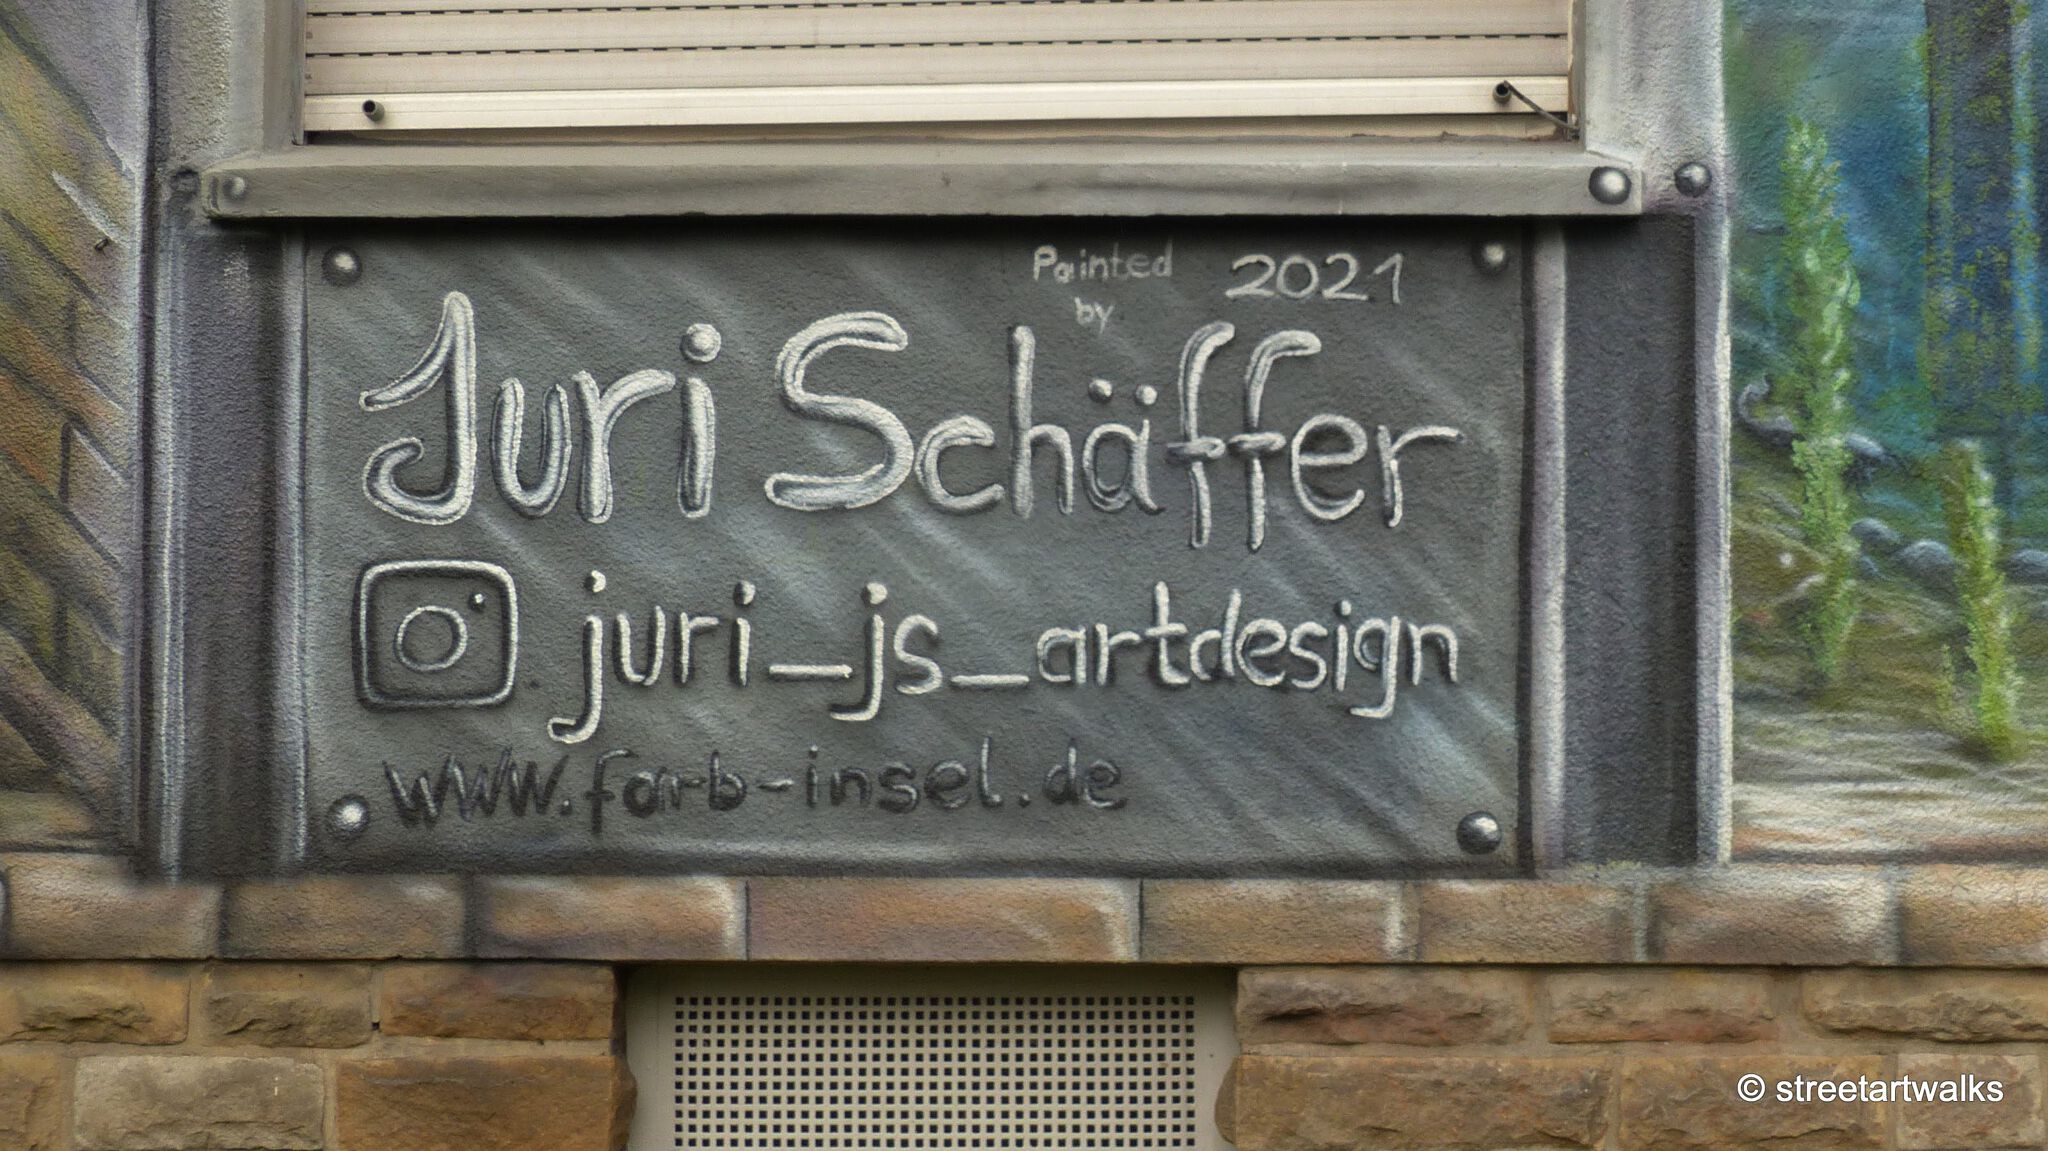 Painted 2021
by
Juri Schäffer
juri_js_artdesign
www.farb-insel.de
© streetartwalks